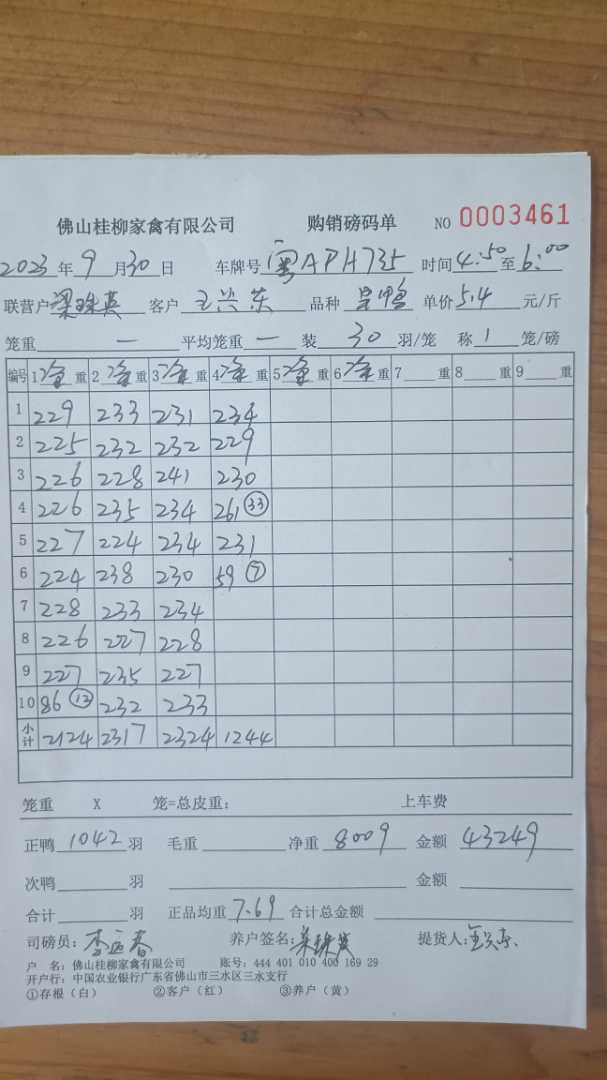 佛山桂柳家禽有限公司 购销磅码单 NO 0003461
2023年9月30日 车牌号粤APH735 时间4:50至6:00
联营户梁珠英 客户王兴东 品种 鸭 单价5.4元/斤
笼重 — 平均笼重 — 装30羽/笼 称1笼/磅
编号 1净重 2净重 3净重 4净重 5净重 6净重 7 重 8 重 9 重
1 229 233 231 234
2 225 232 232 229
3 226 228 241 230
4 226 235 234 261 33
5 227 224 234 231
6 224 238 230 59 7
7 228 233 234
8 226 227 228
9 227 235 227
10 86 12 232 233
小计 2124 2317 2324 1244
笼重 X 笼=总皮重: 上车费
正鸭1042羽 毛重 净重8009 金额43249
次鸭 羽 金额
合计 羽 正品均重7.69 合计总金额
司磅员: 李 春 养户签名:梁珠英 提货人:
户 名: 佛山桂柳家禽有限公司 账号: 444 401 010 400 169 29
开户行: 中国农业银行广东省佛山市三水区三水支行
①存根(白) ②客户(红) ③养户(黄)